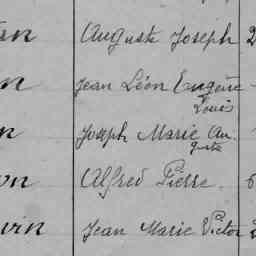 Auguste Joseph 2
Jean Léon Eugène
Louis
Joseph Marie Au
guste
Alfred Pierre 6
vin Jean Marie Victor 2